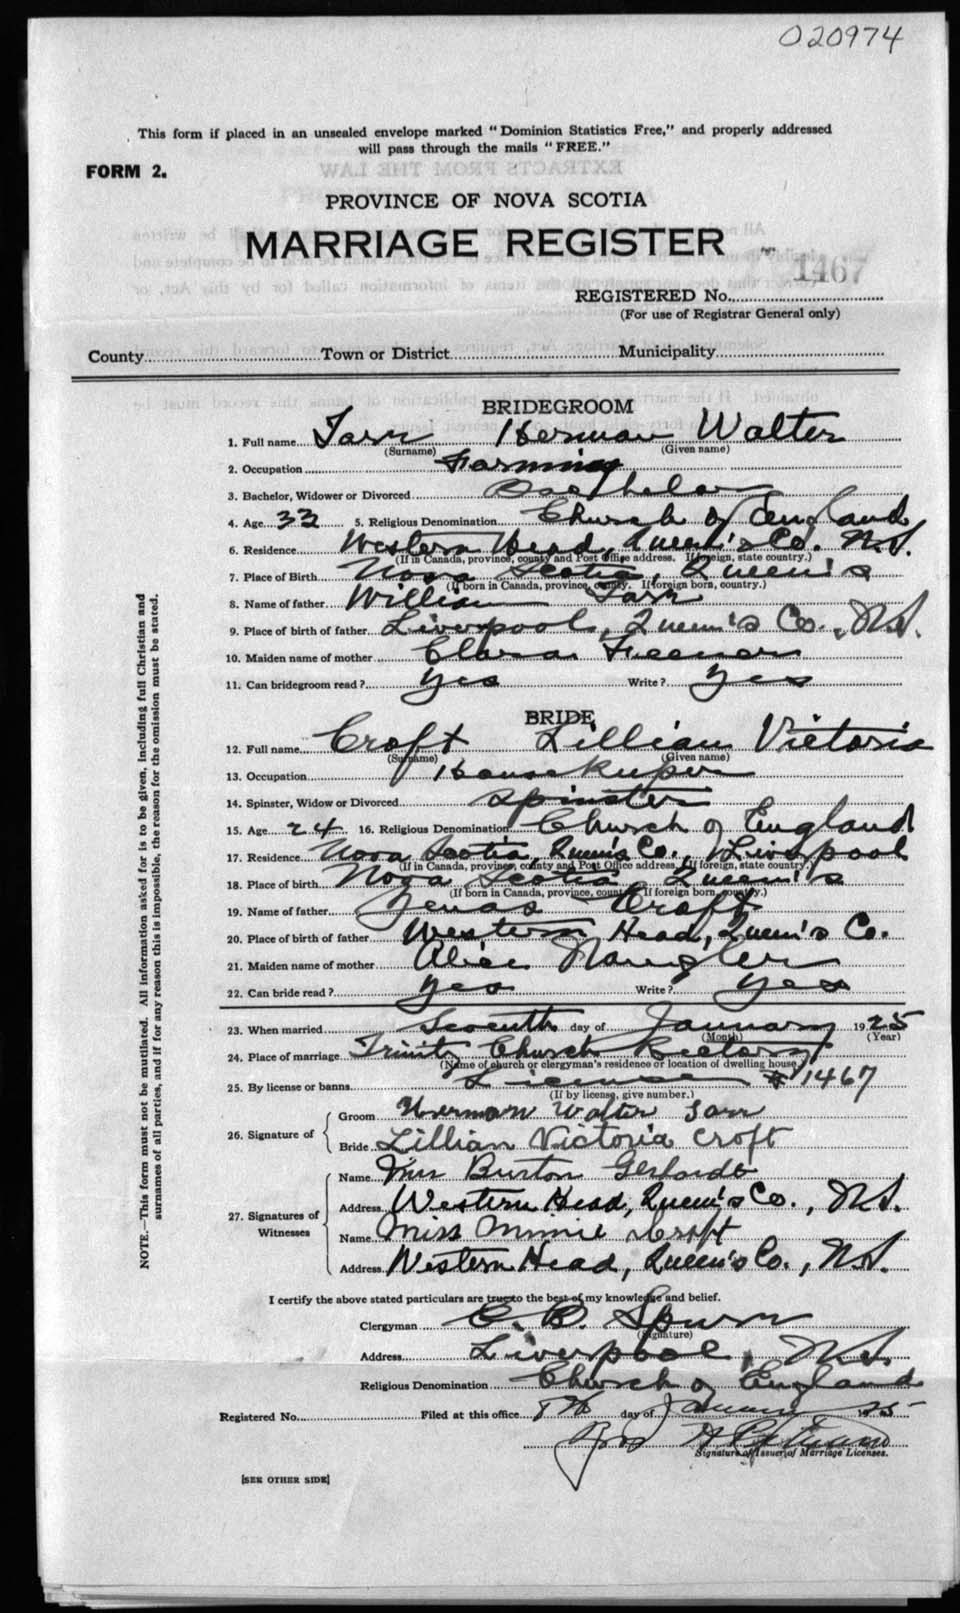 020974
This form if placed in an unsealed envelope marked "Dominion Statistics Free," and properly addressed
will pass through the mails "FREE."
FORM 2.
PROVINCE OF NOVA SCOTIA
MARRIAGE REGISTER
1467
REGISTERED No.
(For use of Registrar General only)
County Town or District Municipality
BRIDEGROOM
1. Full name Tarr Herman Walter
(Surname) (Given name)
2. Occupation Farming
3. Bachelor, Widower or Divorced Bachelor
4. Age 33 5. Religious Denomination Church of England
6. Residence Western Head, Queen's Co. N.S.
(If in Canada, province, county and Post Office address. If foreign, state country.)
7. Place of Birth Nova Scotia, Queen's
(If born in Canada, province, county. If foreign born, country.)
8. Name of father William Tarr
9. Place of birth of father Liverpool, Queen's Co., N.S.
10. Maiden name of mother Clara
11. Can bridegroom read? Yes Write? Yes
BRIDE
12. Full name Croft Lillian Victoria
(Surname) (Given name)
13. Occupation Housekeeper
14. Spinster, Widow or Divorced Spinster
15. Age 24 16. Religious Denomination Church of England
17. Residence Nova Scotia, Queen's Co., Liverpool
(If in Canada, province, county and Post Office address, If foreign, state country.)
18. Place of birth Nova Scotia, Queen's
(If born in Canada, province, county. If foreign born, country.)
19. Name of father Croft
20. Place of birth of father Western Head, Queen's Co.
21. Maiden name of mother Alice Naugler
22. Can bride read? Yes Write? Yes
23. When married Seventh day of January 1925
(Month) (Year)
24. Place of marriage Trinity Church Rectory
(Name of church or clergyman's residence or location of dwelling house.)
25. By license or banns License # 1467
(If by license, give number.)
26. Signature of
Groom Herman Walter Tarr
Bride Lillian Victoria Croft
27. Signatures of Witnesses
Name Mrs Burton
Address Western Head, Queen's Co., N.S.
Name Miss Minnie Croft
Address Western Head, Queen's Co., N.S.
I certify the above stated particulars are true to the best of my knowledge and belief.
Clergyman
(Signature)
Address Liverpool, N.S.
Religious Denomination Church of England
Registered No. Filed at this office 8th day of January 25
Signature of Issuer of Marriage Licenses.
[SEE OTHER SIDE]
NOTE.—This form must not be mutilated. All information asked for is to be given, including full Christian and
surnames of all parties, and if for any reason this is impossible, the reason for the omission must be stated.